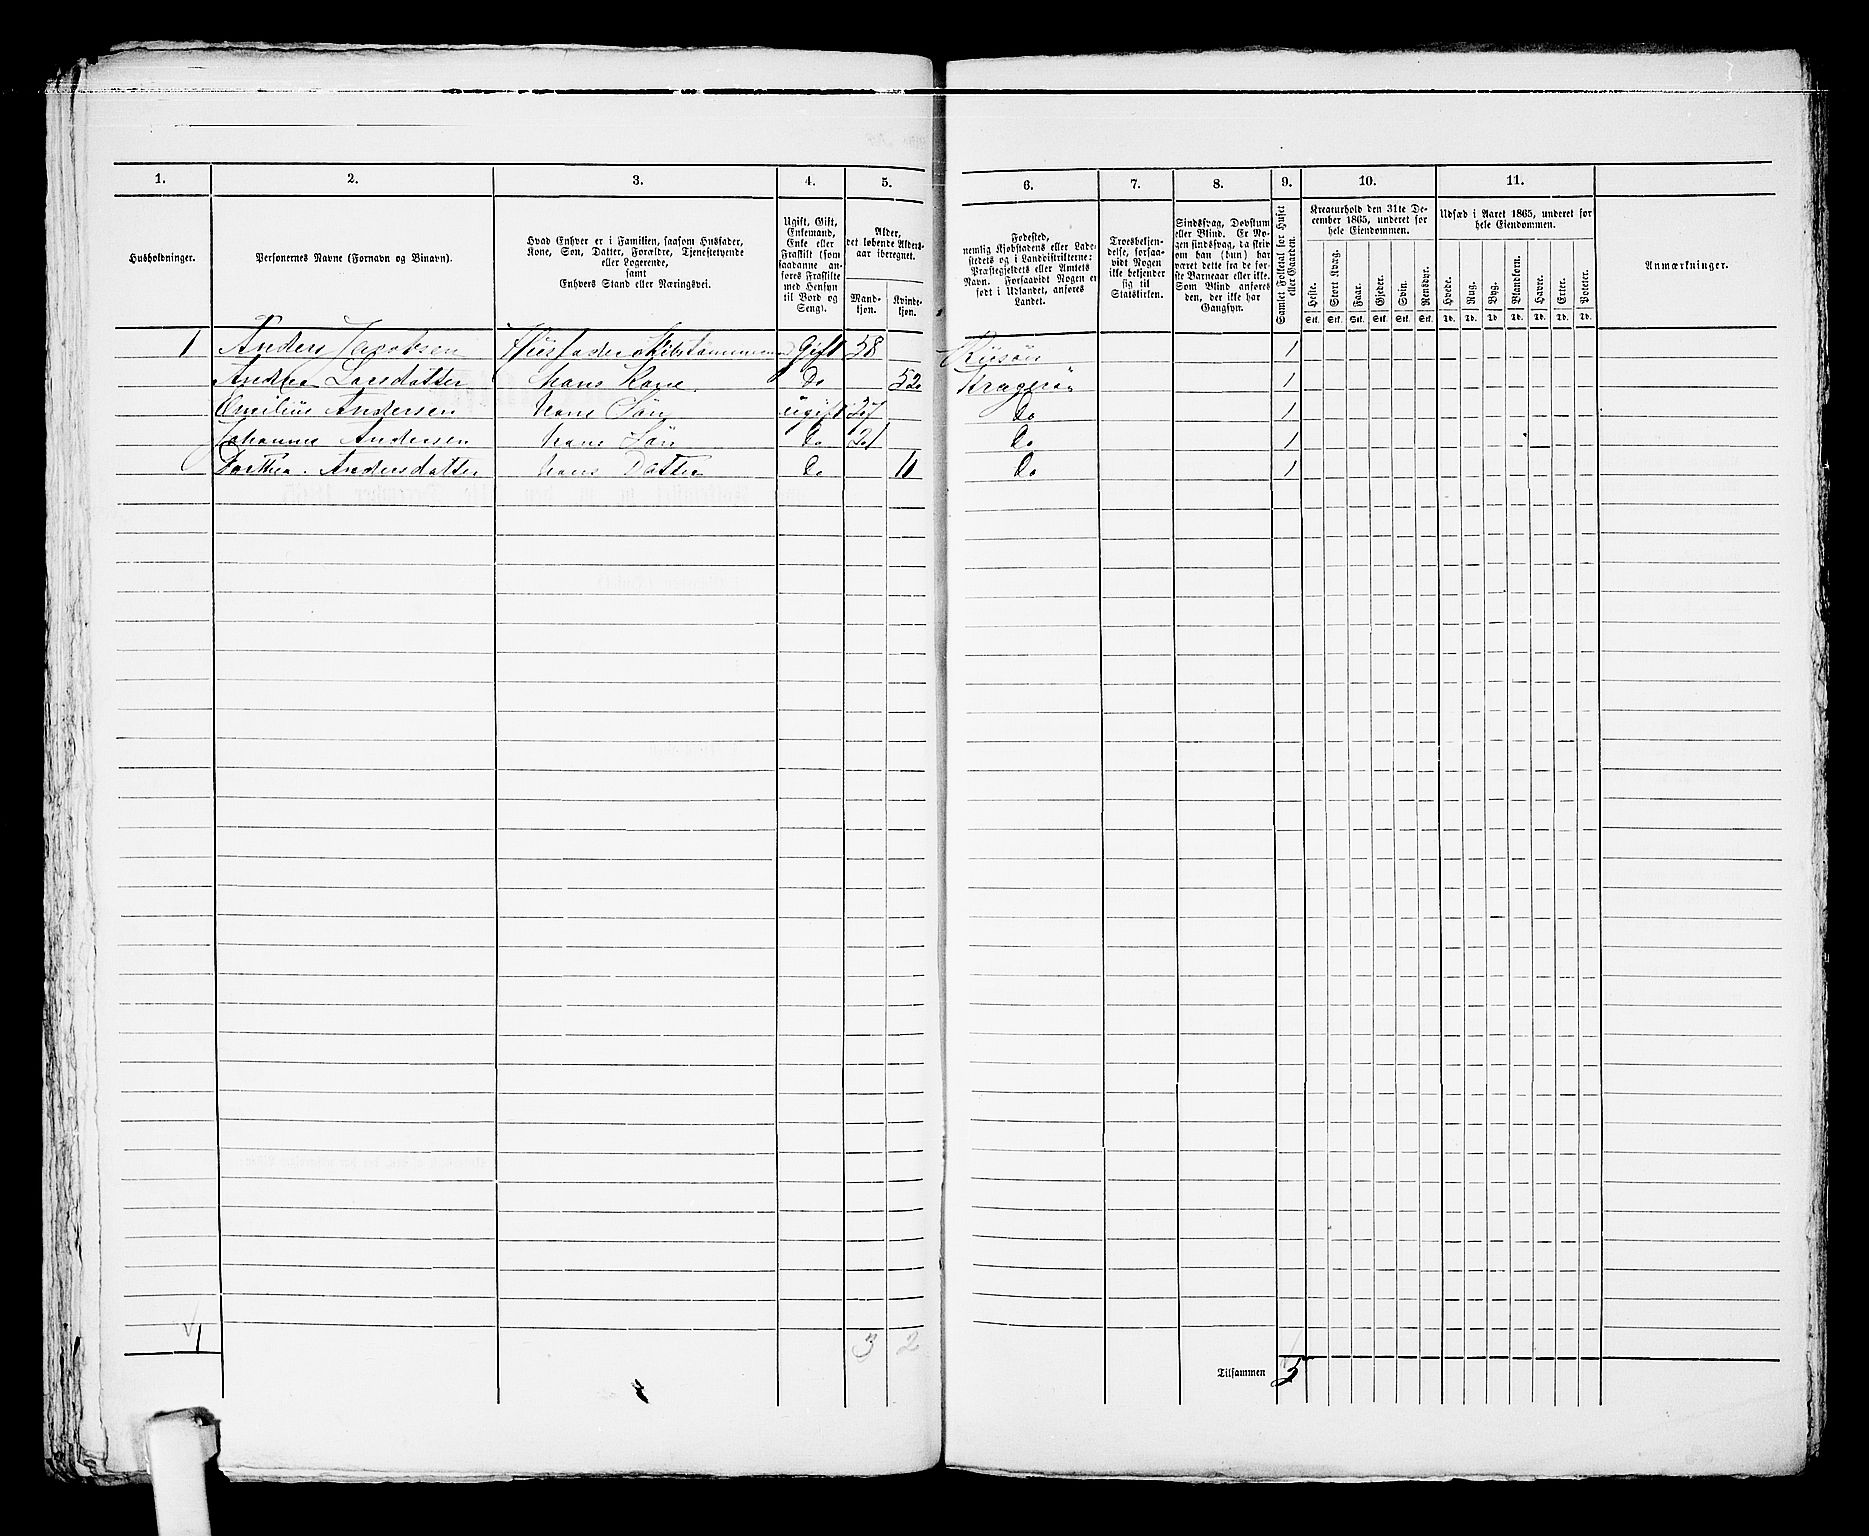 1. 2. 3. 4. 5. 6. 7. 8. 9. 10. 11.
Husholdninger.
Personernes Navne (Fornavn og Binavn).
Hvad Enhver er i Familien, saasom Husfader,
Kone, Søn, Datter, Forældre, Tjenestetyende
eller Logerende,
samt
Enhvers Stand eller Næringsvei.
Ugift, Gift,
Enkemand,
Enke eller
Fraskilt (som
saadanne an-
føres Fraskilte
med Hensyn
til Bord og
Seng).
Alder,
det løbende Alders-
aar iberegnet.
Mand-
kjøn.
Kvinde-
kjøn.
Fødested,
nemlig Kjøbstadens eller Lade-
stedets og i Landdistrikterne:
Præstegjeldets eller Amtets
Navn. Forsaavidt Nogen er
født i Udlandet, anføres
Landet.
Troesbekjen-
delse, forsaa-
vidt Nogen
ikke bekjender
sig til
Statskirken.
Sindssvag, Døvstum
eller Blind. Er No-
gen sindssvag, da skriv
om han (hun) har
været dette fra de før-
ste Barneaar eller ikke.
Som Blind anføres
den, der ikke har
Gangsyn.
Samlet Folketal for Huset
eller Gaarden.
Kreaturhold den 31te De-
cember 1865, underet for
hele Eiendommen.
Heste. Stort Kvæg. Faar. Gjeder. Svin. Rensdyr.
Stk. Stk. Stk. Stk. Stk. Stk.
Udsæd i Aaret 1865, underet for
hele Eiendommen.
Hvede. Rug. Byg. Blandkorn. Havre. Erter. Poteter.
Td. Td. Td. Td. Td. Td. Td.
Anmærkninger.
1 Anders Jacobsen Huusfader Skibstømmermand Gift 58 Riisør 1
Andrea Larsdatter hans Kone. Do 52 Kragerø 1
Emilius Andersen hans Søn ugift 27 Do 1
Johannes Andersen hans Søn Do 21 Do 1
Dorthea Andersdatter hans Datter Do 11 Do 1
1 3 2
Tilsammen 5